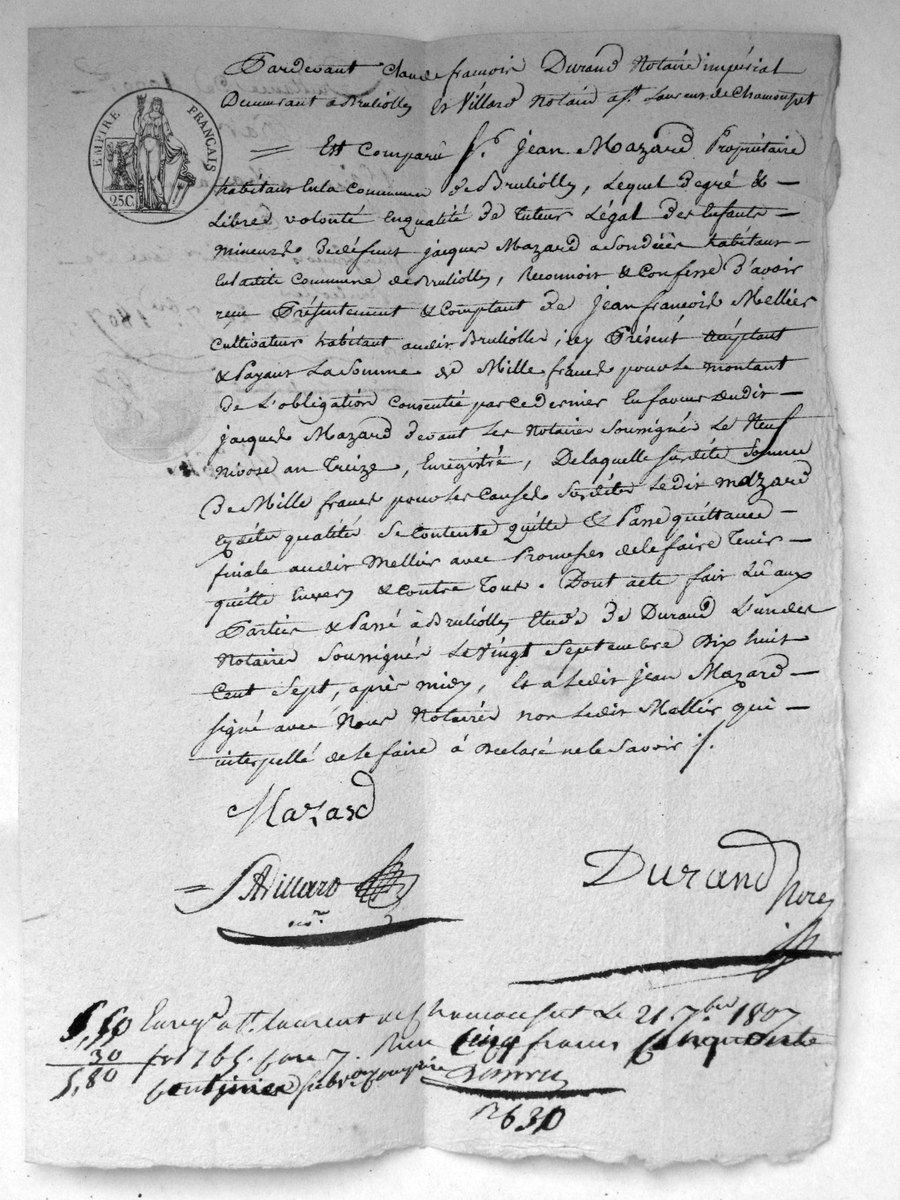 EMPIRE FRANÇAIS
25C.
Pardevant Claude françois Durand Notaire impérial
Demeurant a Bruliolles Et Villard Notaire a St. Laurent de Chamousset
Est Comparû Sr. jean Mazard Propriétaire
habitant En la Commune de Bruliolles, Lequel De gré &
Libre volonté En qualité De tuteur Légal Des Enfants
mineurs De défunt jacques Mazard a Son décès habitant
En ladite Commune de Bruliolles, Reconnoit & Confesse D'avoir
reçu Présentement & Comptant De jean françois Mellier
Cultivateur habitant audit Brulliolles ici Présent acceptant
& Payant La Somme de Mille francs pour le montant
De L'obligation Consentie par ce dernier En faveur dudit
jacques Mazard devant Les Notaires Soussignés Le Neuf
Nivose an Treize, Enregistré, De laquelle Susdite Somme
De Mille francs pour les Causes Susdites Ledit Mazard
qualité Se Contente quitte & Passe quittance
finale audit Mellier avec Promesses de le faire Tenir
quitte Envers & Contre Tous. Dont acte fait Lû aux
Parties & Passé à Brulliolles Etude De Durand L'un des
Notaires Soussignés Le Vingt Septembre Dix huit
Cent Sept, après midy, Et a Ledit jean Mazard
signé avec Nous Notaires non Ledit Mellier qui
interpellé de le faire à Déclaré ne le Savoir ./.
Mazard
Villard
Durand Nore
5,50
30
5,80
Enregé a St. Laurent de Chamousset Le 21 7bre 1807
fol 165 Reçu Cinq francs Cinquante
Centimes
630